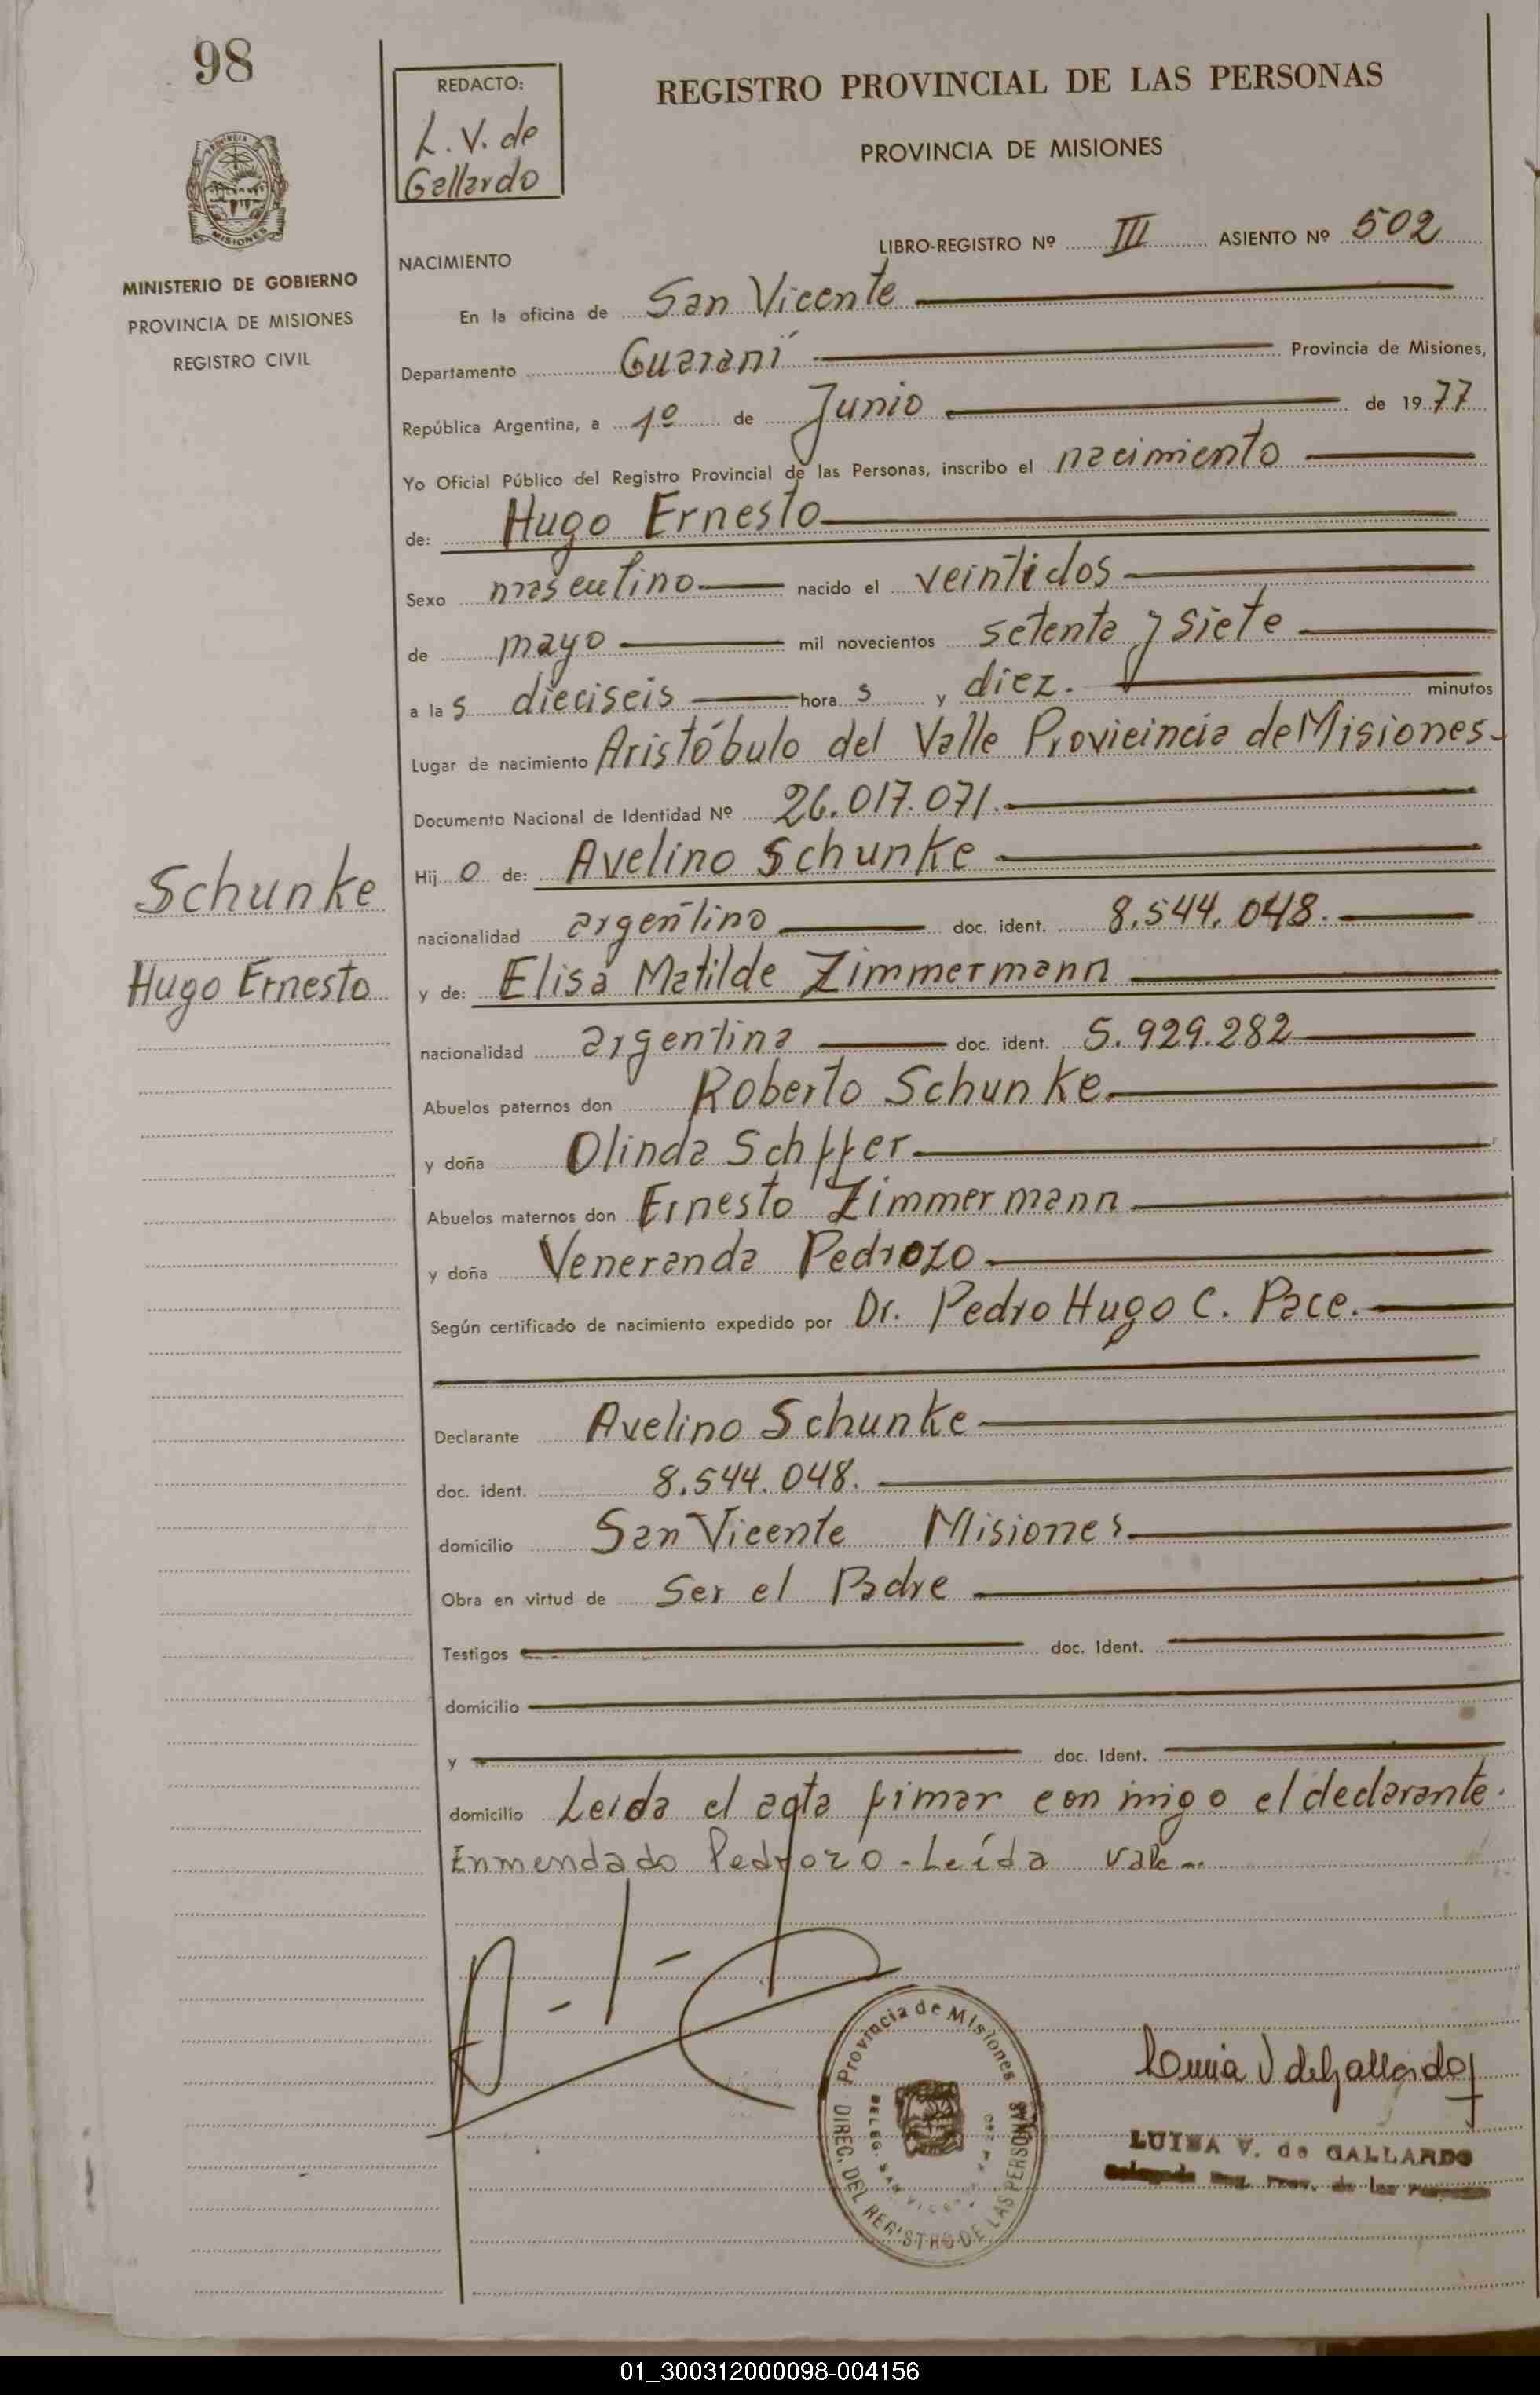 98
REDACTO:
L. V. de
Gallardo
REGISTRO PROVINCIAL DE LAS PERSONAS
PROVINCIA DE MISIONES
MISIONES
MINISTERIO DE GOBIERNO
PROVINCIA DE MISIONES
REGISTRO CIVIL
LIBRO-REGISTRO Nº III ASIENTO Nº 502
NACIMIENTO
En la oficina de San Vicente
Departamento Guaraní Provincia de Misiones,
República Argentina, a 1º de Junio de 1977
Yo Oficial Público del Registro Provincial de las Personas, inscribo el nacimiento
de: Hugo Ernesto
Sexo masculino nacido el veintidos
de mayo mil novecientos setenta y siete
a las dieciseis horas y diez. minutos
Lugar de nacimiento Aristóbulo del Valle Provieincia de Misiones
Documento Nacional de Identidad Nº 26.017.071.
Hijo de: Avelino Schunke
nacionalidad argentino doc. ident. 8.544.048.
Schunke
Hugo Ernesto
y de: Elisa Matilde Zimmermann
nacionalidad argentina doc. ident. 5.929.282
Abuelos paternos don Roberto Schunke
y doña Olinda
Abuelos maternos don Ernesto Zimmermann
y doña Veneranda Pedrozo
Según certificado de nacimiento expedido por Dr. Pedro Hugo C. Pace.
Declarante Avelino Schunke
doc. ident. 8.544.048.
domicilio San Vicente Misiones
Obra en virtud de Ser el Padre
Testigos doc. Ident.
domicilio
y doc. Ident.
domicilio Leida el aqta fimar con migo el declarante.
Enmendado Pedrozo - Leída vale
Provincia de Misiones
DIREC. DEL REGISTRO DE LAS PERSONAS
DELEG. SAN VICENTE
Luisa V de Gallardo
LUISA V. de GALLARDO
Delegada Reg. Prov. de las Personas
01_300312000098-004156